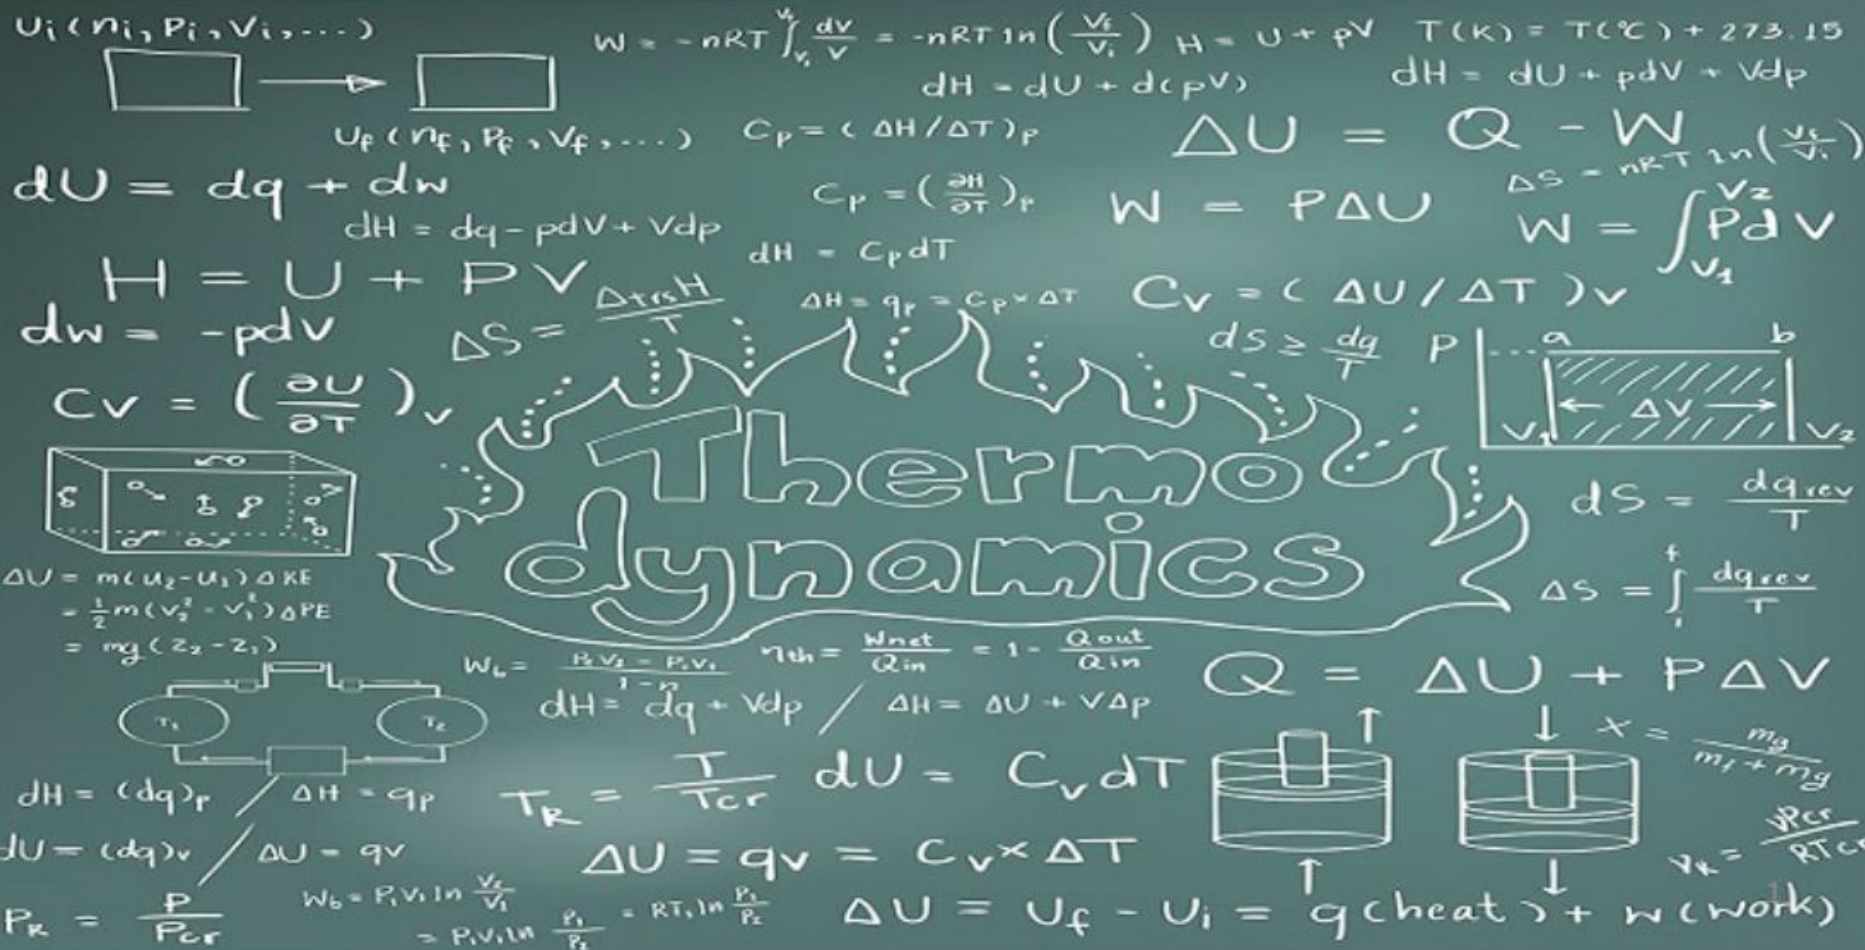 Ui(ni, Pi, Vi, ...)
W = -nRT ∫ dV/V = -nRT ln(Vf/Vi)
H = U + pV
T(K) = T(°C) + 273.15
dH = dU + d(pV)
dH = dU + pdV + Vdp
Uf(nf, Pf, Vf, ...)
Cp = (ΔH/ΔT)p
ΔU = Q - W
ΔS = nRT ln(Vf/Vi)
dU = dq + dw
Cp = (∂H/∂T)p
W = PΔU
W = ∫V1 V2 PdV
dH = dq - pdV + Vdp
dH = CpdT
H = U + PV
ΔS = ΔtrsH/T
ΔH = qp = Cp × ΔT
Cv = (ΔU/ΔT)v
dw = -pdV
dS ≥ dq/T
P a b
ΔV
V1 V2
Cv = (∂U/∂T)v
Thermo
dynamics
dS = dqrev/T
ΔU = m(u2-u1)ΔKE
= 1/2 m(v2² - v1²)ΔPE
= mg(z2-z1)
ΔS = ∫i f dqrev/T
Wb = P2V2 - P1V1/1-n
ηth = Wnet/Qin = 1 - Qout/Qin
Q = ΔU + PΔV
T1 T2
dH = dq + Vdp / ΔH = ΔU + VΔp
x = mg/mf+mg
dH = (dq)p / ΔH = qp
TR = T/Tcr
dU = CvdT
dU = (dq)v / ΔU = qv
ΔU = qv = Cv × ΔT
vR = vPcr/RTcr
PR = P/Pcr
Wb = P1V1 ln V2/V1
= P1V1 ln P1/P2 = RT1 ln P1/P2
ΔU = Uf - Ui = q(heat) + w(work)